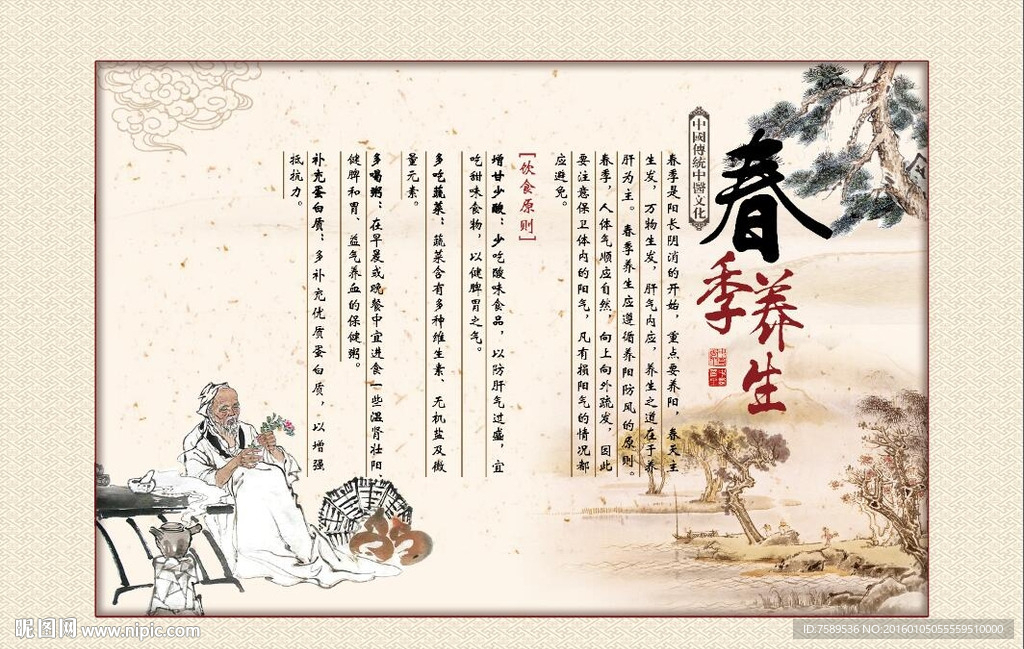 中國傳統中醫文化
春
季养
生
春季是阳长阴消的开始，重点要养阳，春天主
生发，万物生发，肝气内应，养生之道在于养
肝为主。春季养生应遵循养阳防风的原则。
春季，人体气顺应自然，向上向外疏发，因此
要注意保卫体内的阳气，凡有损阳气的情况都
应避免。
[饮食原则]
增甘少酸：少吃酸味食品，以防肝气过盛，宜
吃甜味食物，以健脾胃之气。
多吃蔬菜：蔬菜含有多种维生素、无机盐及微
量元素。
多喝粥：在早晨或晚餐中宜进食一些温肾壮阳、
健脾和胃、益气养血的保健粥。
补充蛋白质：多补充优质蛋白质，以增强
抵抗力。
昵图网 www.nipic.com
ID:7589536 NO:20160105055559510000